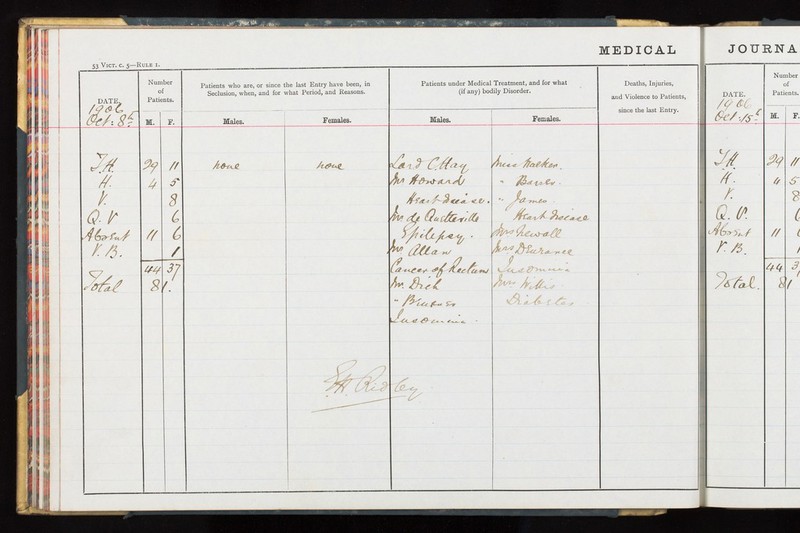 MEDICAL
JOURNA
53 VICT. C. 5—RULE 1.
DATE.
1906
Oct: 8th
Number of Patients.
M. F.
Patients who are, or since the last Entry have been, in Seclusion, when, and for what Period, and Reasons.
Males. Females.
Patients under Medical Treatment, and for what (if any) bodily Disorder.
Males. Females.
Deaths, Injuries, and Violence to Patients, since the last Entry.
T.H. 29 11 none none Lord C. Hay Miss Walker.
H. 4 5 Mr Howard "
V. 8 Heart disease. " James
Q. V 6 Mr de Heart Disease
Absent 11 6 Epilepsy. Mrs Newall
V. B. 1 Mr Allan
44 37 Cancer of Rectum Insomnia
Total 81. Mr. Dick Mrs Willis
" Diabetes
Insomnia.
Ridley
DATE.
1906
Oct: 15th
Number of Patients.
M. F.
T.H. 29 11
H. 4 5
V. 8
Q. V.
Absent 11
V. B.
44 3
Total. 81